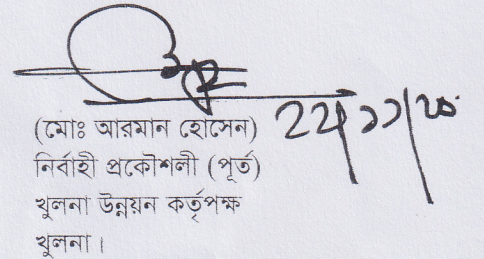 (মোঃ আরমান হোসেন)
নির্বাহী প্রকৌশলী (পূর্ত)
খুলনা উন্নয়ন কর্তৃপক্ষ
খুলনা।